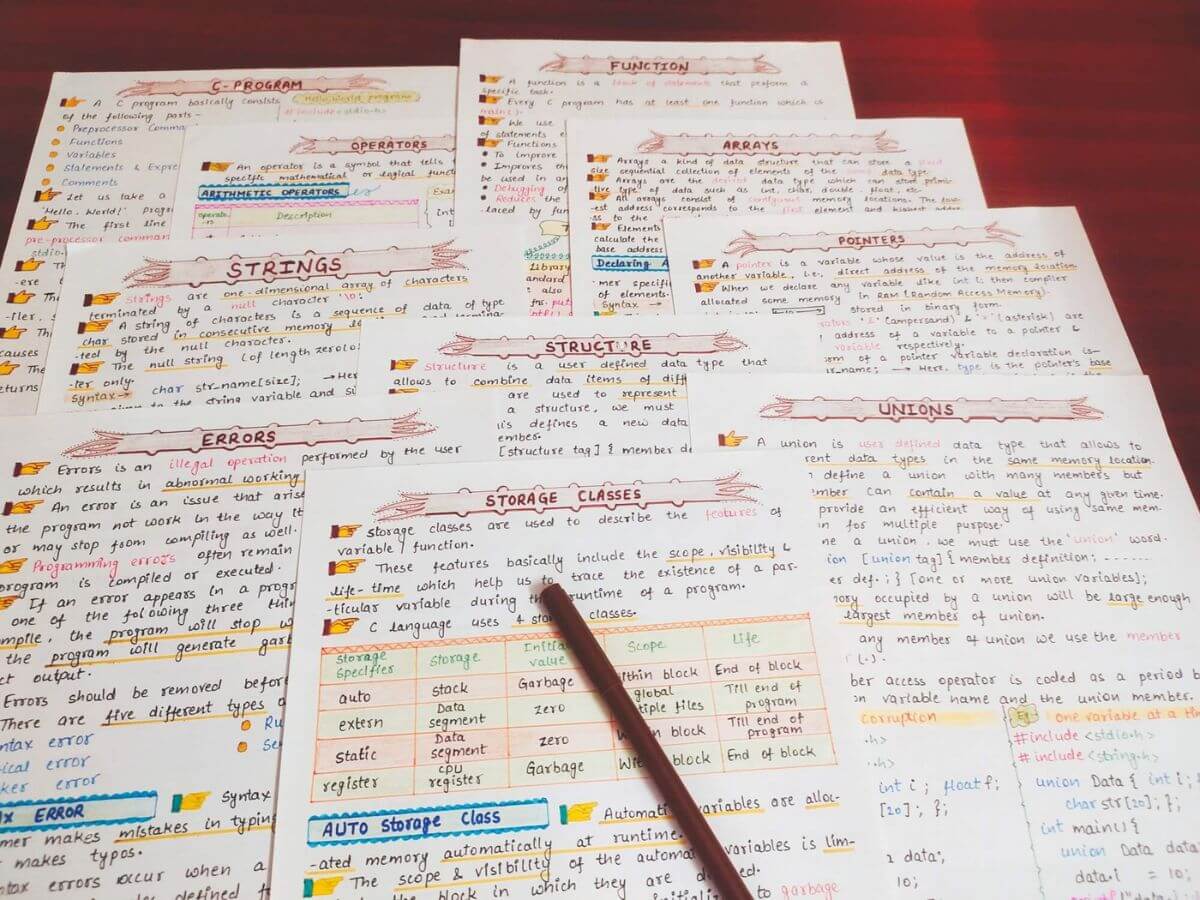 C-PROGRAM
A C program basically consists
of the following parts -
Preprocessor Comma
Functions
Variables
Statements & Expre
Comments
Let us take a
"Hello, World!" Progra
The first line
pre-processor comman
stdio.h
Th
-ere
Th
-iler, s
Th
causes
The
eturns
Hello World program
#include<stdio.h>
FUNCTION
A function is a block of statements that perform a
specific task.
Every C program has at least one function which is
main().
We use
of statements e
Functions
To improve
Improves th
be used in an
Debugging of
Reduces the
-laced by fun
Library
andard
e also
fns. put
OPERATORS
An operator is a symbol that tells
specific mathematical or logical func
ARITHMETIC OPERATORS
operato
-n
Description
Exam
int
ARRAYS
Arrays a kind of data structure that can store a fixed
size sequential collection of elements of the same data type.
Arrays are the derived data type which can store primi-
tive type of data such as int, char, double, float, etc.
All arrays consist of contiguous memory locations. The low-
-est address corresponds to the first element and highest addre
-ss to the
Elements
calculate the
base address
Declaring A
mer specifi
of elements.
Syntax →
POINTERS
A pointer is a variable whose value is the address of
another variable, i.e., direct address of the memory location
When we declare any variable like int i; then compiler
allocated some memory in RAM (Random Access Memory).
stored in binary form.
rators '&' (ampersand) & '*' (asterisk) are
address of a variable to a pointer &
variable respectively.
em of a pointer variable declaration is-
r_name; → Here, type is the pointers base
STRINGS
Strings are one-dimensional array of characters
terminated by a null character '\0'.
A string of characters is a sequence of data of type
char stored in consecutive memory
-ted by the null character.
The null string (of length zero
-ter only.
Syntax→ char str_name[size]; →He
to the string variable and si
STRUCTURE
Structure is a user defined data type that
allows to combine data items of diff
are used to represent
a structure, we must
is defines a new data
embes.
[structure tag] { member de
UNIONS
A union is user defined data type that allows to
rent data types in the same memory location.
define a union with many members but
mber can contain a value at any given time.
provide an efficient way of using same mem-
n for multiple purpose.
ne a union, we must use the 'union' word.
ion [union tag] { member definition; .......
er def.; } [one or more union variables];
nory occupied by a union will be large enough
largest member of union.
any member of union we use the member
r (.).
ber access operator is coded as a period b
on variable name and the union member.
corruption
.h>
int i; float f;
[20]; };
data;
10;
Eg: one variable at a tim
#include <stdio.h>
#include <string.h>
union Data { int i;
char str[20]; };
int main() {
union Data data
data.i = 10;
printf("data.i
ERRORS
Errors is an illegal operation performed by the user
which results in abnormal working
An error is an issue that arise
the program not work in the way it
or may stop from compiling as well.
Programming errors often remain
program is compiled or executed.
If an error appears in a progr
one of the following three thin
mpile, the program will stop w
the program will generate garb
ct output.
Errors should be removed before
There are five different types
ntax error
Ru
ical error
Se
ker error
x ERROR
Syntax
mer makes mistakes in typing
makes typos.
ntax errors occur when a
STORAGE CLASSES
Storage classes are used to describe the features of
variable / function.
These features basically include the scope, visibility &
life-time which help us to trace the existence of a par-
-ticular variable during the runtime of a program.
C language uses 4 storage classes.
Storage Specifier Storage Initial value Scope Life
auto stack Garbage Within block End of block
extern Data segment zero global multiple files Till end of program
static Data segment zero Within block Till end of program
register CPU register Garbage Within block End of block
AUTO Storage Class
Automatic variables are alloc-
-ated memory automatically at runtime.
The scope & visibility of the automatic variables is lim-
the block in which they are
to garbage